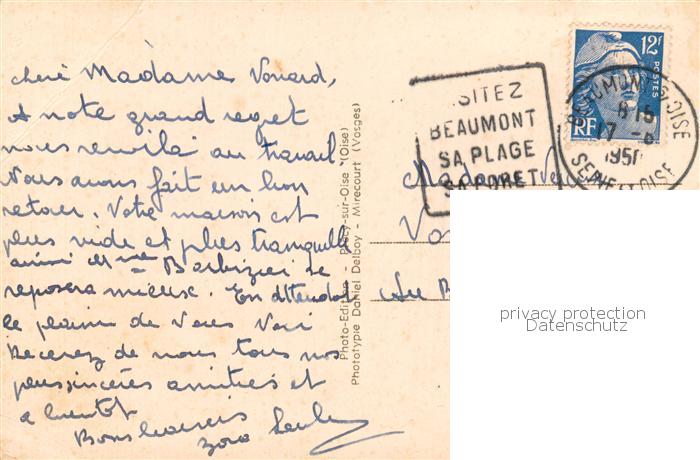 cheré Madame Vonard,
A note grand regret
nous revoila au travail
Nous avons fait un bon
retour. Votre maison est
plus vide et plus tranquille
ainsi Mme se
reposera mieux. En attendant
le plaisir de Vous Voir
Recevez de nous tous nos
plus sincères amitiés et
a bientôt
Bons baisers
Photo-Edition - Précy-sur-Oise (Oise)
Phototypie Daniel Delboy - Mirecourt (Vosges)
SITEZ
BEAUMONT
SA PLAGE
SA FORET
12F
POSTES
RF
BEAUMONT S. OISE
1950
SEINE ET OISE
Madame
privacy protection
Datenschutz